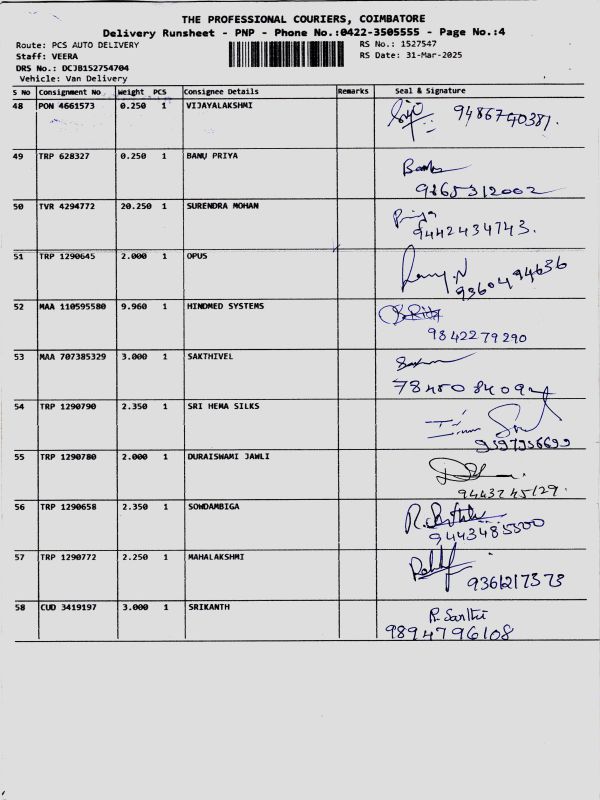 THE PROFESSIONAL COURIERS, COIMBATORE
Delivery Runsheet - PNP - Phone No.:0422-3505555 - Page No.:4
Route: PCS AUTO DELIVERY RS No.: 1527547
Staff: VEERA RS Date: 31-Mar-2025
DRS No.: DCJB152754704
Vehicle: Van Delivery
S No Consignment No Weight PCS Consignee Details Remarks Seal & Signature
48 PON 4661573 0.250 1 VIJAYALAKSHMI
9486740381.
49 TRP 628327 0.250 1 BANU PRIYA
9865312002
50 TVR 4294772 20.250 1 SURENDRA MOHAN Priya
9442434743.
51 TRP 1290645 2.000 1 OPUS
9360494636
52 MAA 110595580 9.960 1 HINDMED SYSTEMS
9842279290
53 MAA 707385329 3.000 1 SAKTHIVEL
54 TRP 1290790 2.350 1 SRI HEMA SILKS
55 TRP 1290780 2.000 1 DURAISWAMI JAWLI
9443245129.
56 TRP 1290658 2.350 1 SOWDAMBIGA
9443485500
57 TRP 1290772 2.250 1 MAHALAKSHMI
9361217373
58 CUD 3419197 3.000 1 SRIKANTH R. Sarthi
9894796108